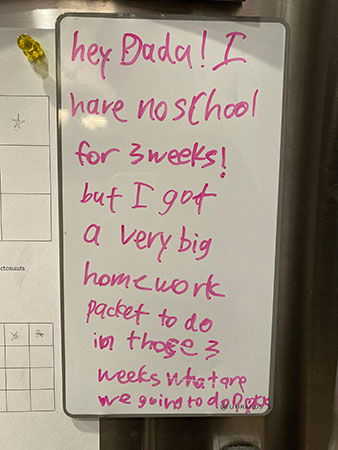 hey Dada! I
have no school
for 3 weeks!
but I got
a very big
homework
packet to do
in those 3
weeks what are
we going to do?
U BRANDS
ctonauts